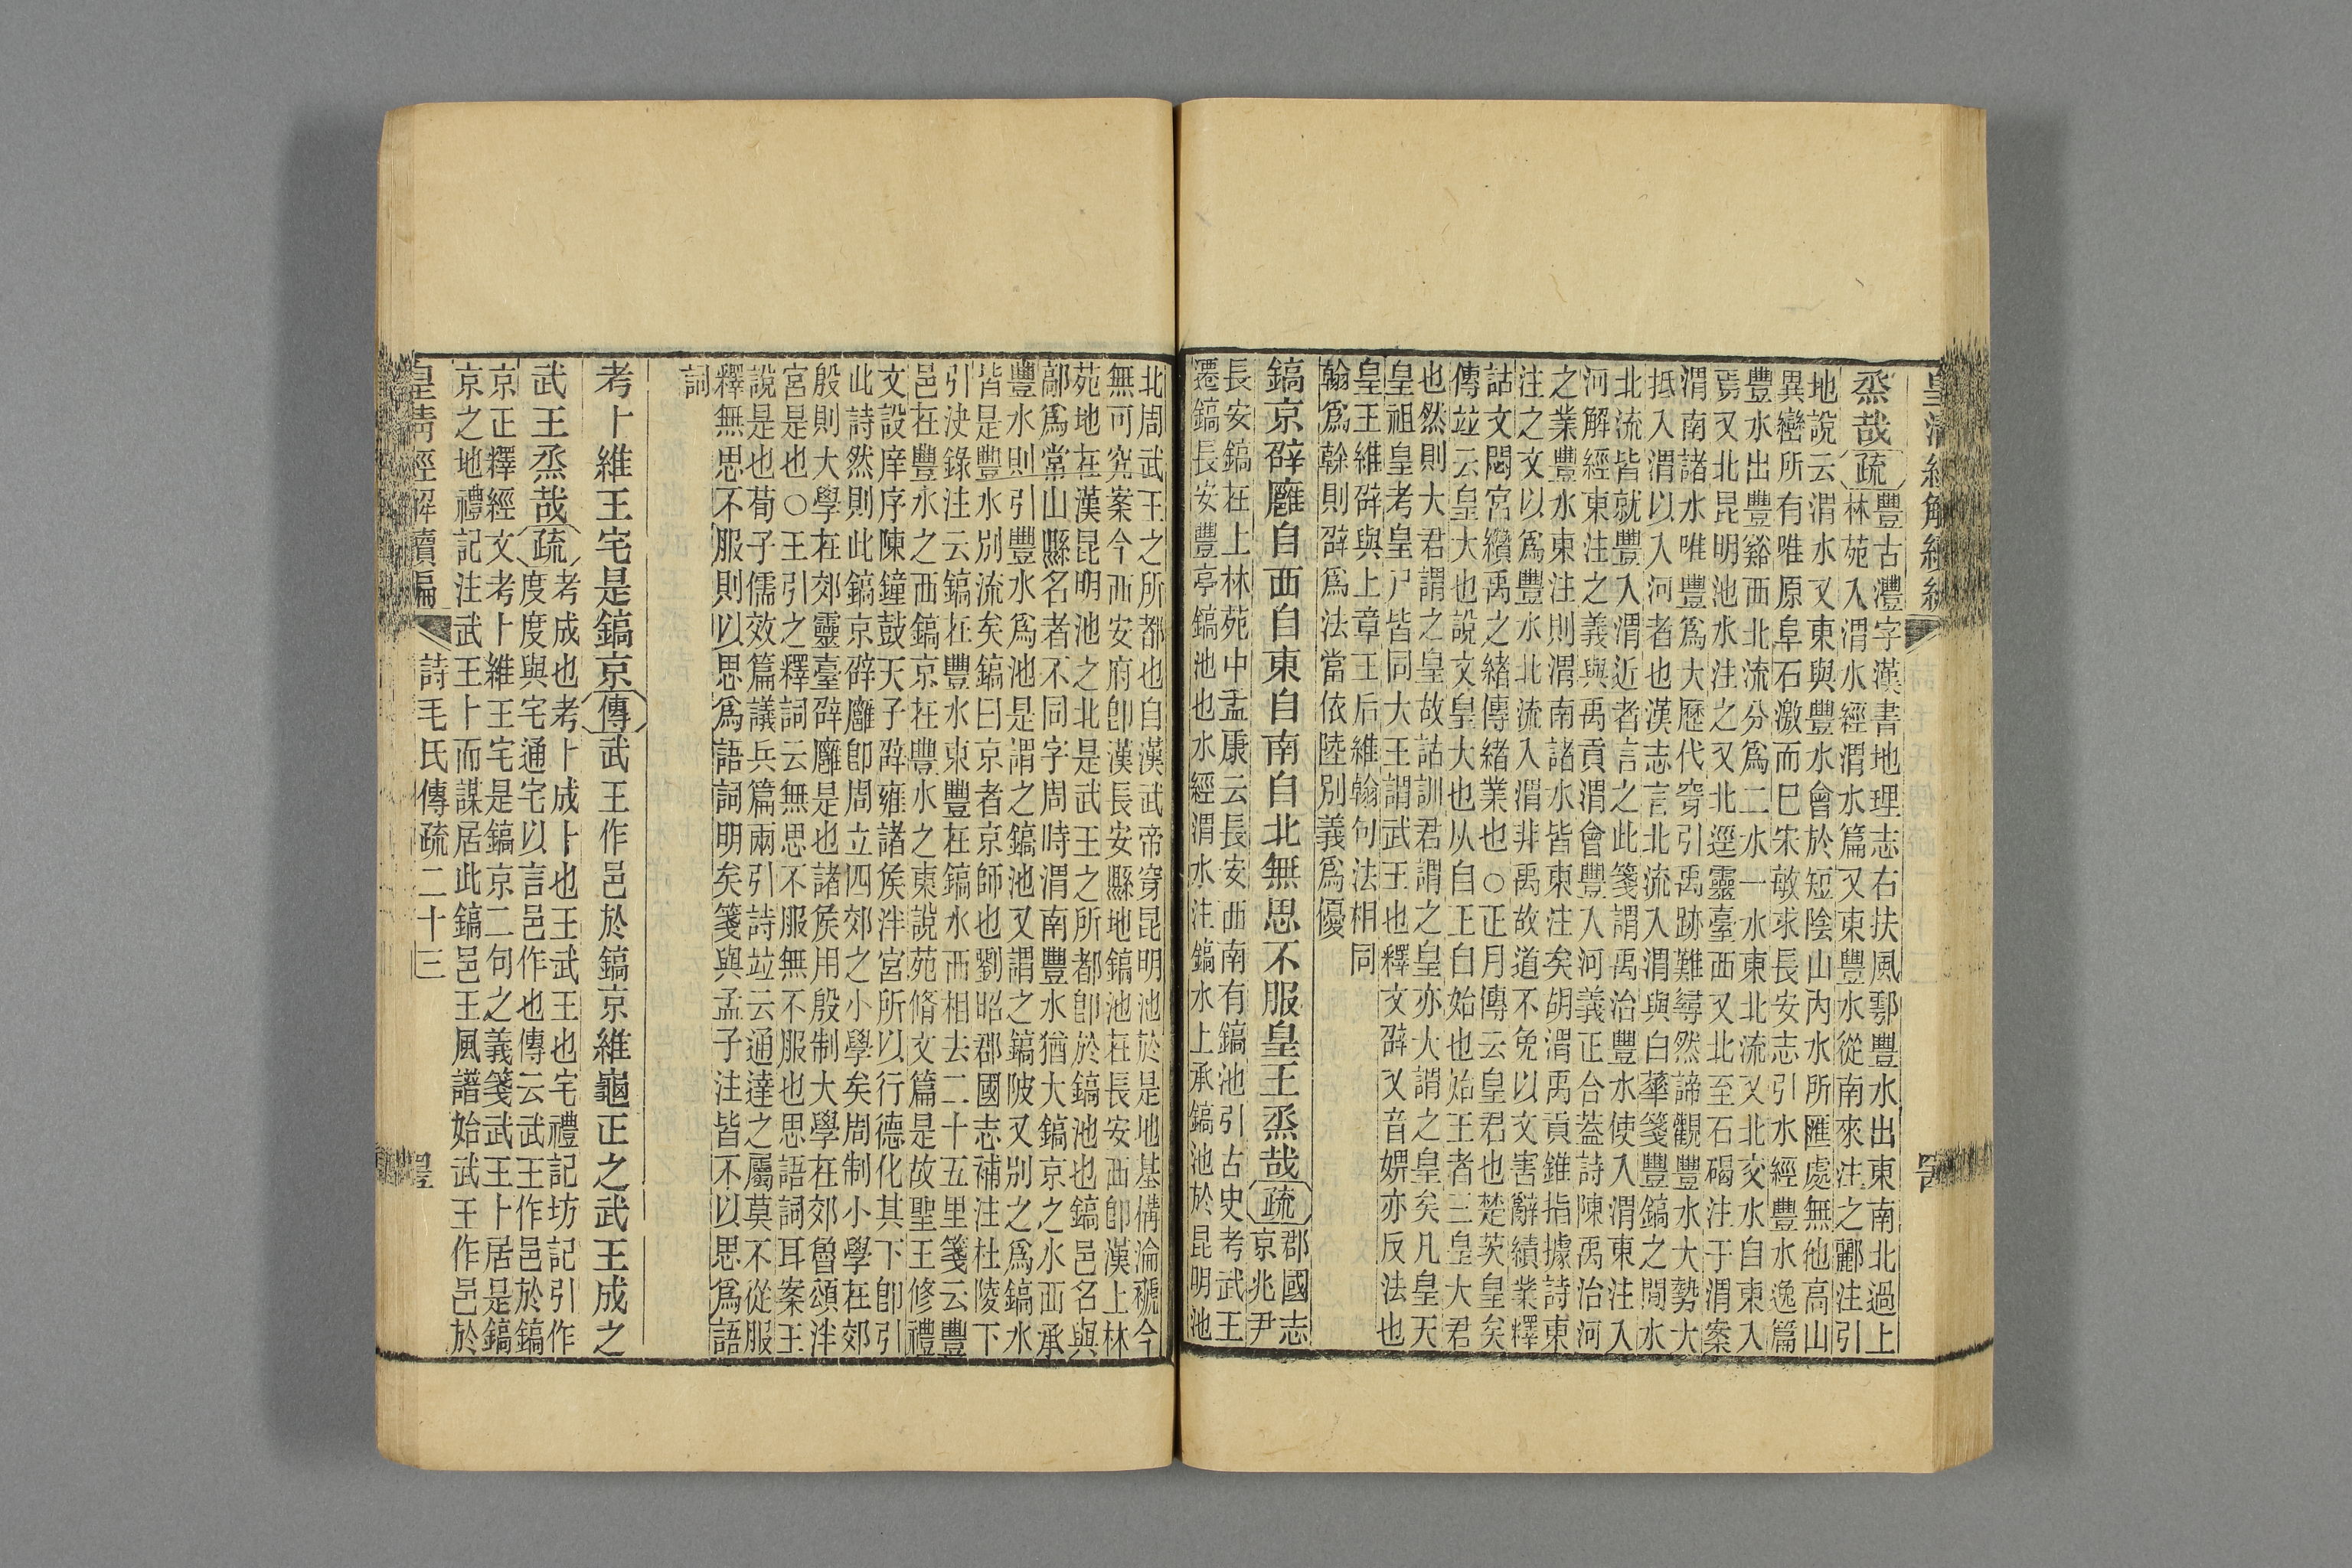 烝哉疏
豐古灃字漢書地理志右扶風鄠豐水出東南北過上
林苑入渭水經渭水篇又東豐水從南來注之酈注引
地說云渭水又東與豐水會於短陰山內水所匯處無他高山
異巒所有唯原阜石激而已宋敏求長安志引水經豐水逸篇
豐水出豐谿西北流分為二水一水東北流又北交水自東入
焉又北昆明池水注之又北逕靈臺西又北至石碣注于渭案
渭南諸水唯豐為大歷代穿引禹跡難尋然諦觀豐水大勢大
抵入渭以入河者也漢志言北流入渭與白華箋豐鎬之閒水
北流皆就豐入渭近者言之此箋謂禹治豐水使入渭東注入
河解經東注之義與禹貢渭會豐入河義正合蓋詩陳禹治河
之業豐水東注則渭南諸水皆東注矣胡渭禹貢錐指據詩東
注之文以為豐水北流入渭非禹故道不免以文害辭績業釋
詁文閟宮纘禹之緒傳緒業也○正月傳云皇君也楚茨皇矣
傳竝云皇大也說文皇大也从自王自始也始王者三皇大君
也然則大君謂之皇故詁訓君謂之皇亦大謂之皇矣凡皇天
皇祖皇考皇尸皆同大王謂武王也釋文辟又音婢亦反法也
皇王維辟與上章王后維翰句法相同
翰為榦則辟為法當依陸別義為優
鎬京辟廱自西自東自南自北無思不服皇王烝哉疏
郡國志
京兆尹
長安鎬在上林苑中孟康云長安西南有鎬池引古史考武王
遷鎬長安豐亭鎬池也水經渭水注鎬水上承鎬池於昆明池
北周武王之所都也自漢武帝穿昆明池於是地基構淪褫今
無可究案今西安府卽漢長安縣地鎬池在長安西卽漢上林
苑地在漢昆明池之北是武王之所都卽於鎬池也鎬邑名與
鄗為常山縣名者不同字周時渭南豐水猶大鎬京之水西承
豐水則引豐水為池是謂之鎬池又謂之鎬陂又別之為鎬水
皆是豐水別流矣鎬曰京者京師也劉昭郡國志補注杜陵下
引決錄注云鎬在豐水東豐在鎬水西相去二十五里箋云豐
邑在豐水之西鎬京在豐水之東說苑脩文篇是故聖王修禮
文設庠序陳鐘鼓天子辟雍諸侯泮宮所以行德化其下卽引
此詩然則此鎬京辟廱卽周立四郊之小學矣周制小學在郊
殷則大學在郊靈臺辟廱是也諸侯用殷制大學在郊魯頌泮
宮是也○王引之釋詞云無思不服無不服也思語詞耳案王
說是也荀子儒效篇議兵篇兩引詩竝云通達之屬莫不從服
釋無思不服則以思為語詞明矣箋與孟子注皆不以思為語
詞
考卜維王宅是鎬京傳武王作邑於鎬京維龜正之武王成之
武王烝哉疏
考成也考卜成卜也王武王也宅禮記坊記引作
度度與宅通宅以言邑作也傳云武王作邑於鎬
京正釋經文考卜維王宅是鎬京二句之義箋武王卜居是鎬
京之地禮記注武王卜而謀居此鎬邑王風譜始武王作邑於
皇清經解續編
詩毛氏傳疏二十三